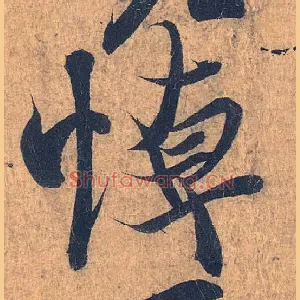 悼
Shufawang.CN